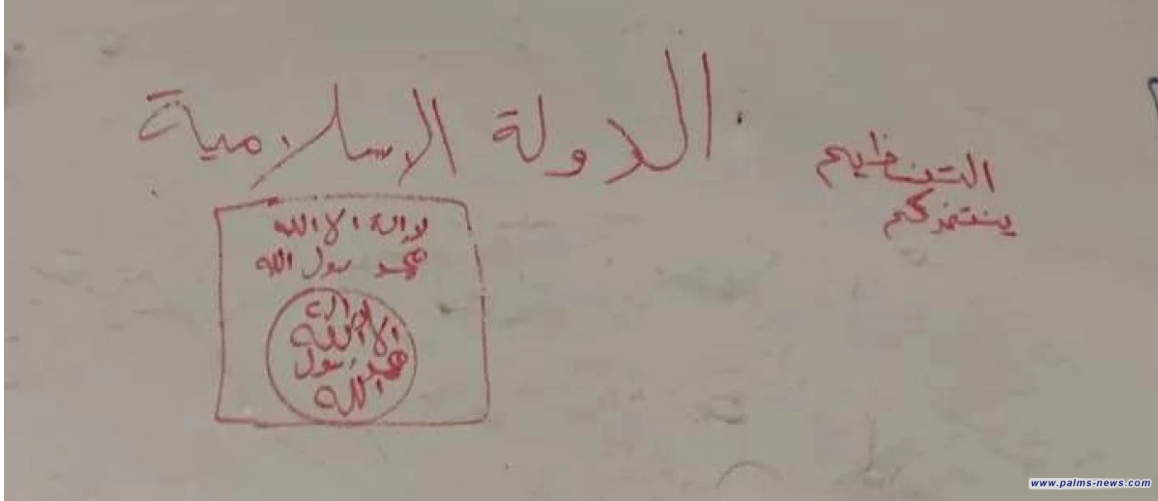 الدولة الإسلامية
التنظيم
ينتضركم
لا إله الا الله
محمد رسول الله
لا اله
الا الله
محمد رسول
الله
www.palms-news.com